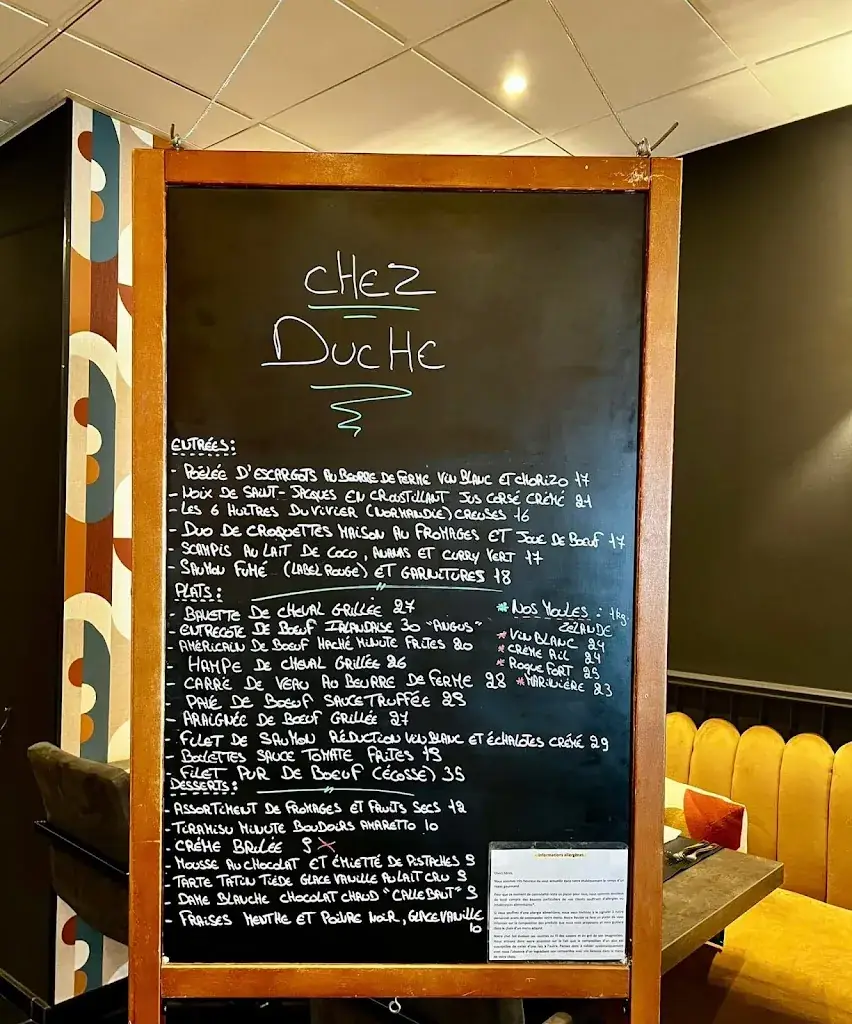 CHEZ
DUCHE
ENTRÉES:
- POÊLÉE D'ESCARGOTS AU BEURRE DE FERME VIN BLANC ET CHORIZO 17
- NOIX DE SAINT-JACQUES EN CROUSTILLANT JUS CORSÉ CRÉMÉ 21
- LES 6 HUÎTRES DU VIVIER (NORMANDIE) CREUSES 16
- DUO DE CROQUETTES MAISON AU FROMAGES ET JOUE DE BOEUF 17
- SCAMPIS AU LAIT DE COCO, ANANAS ET CURRY VERT 17
- SAUMON FUMÉ (LABEL ROUGE) ET GARNITURES 18
PLATS:
- BAVETTE DE CHEVAL GRILLÉE 27
- ENTRECOTE DE BOEUF IRLANDAISE 30 "ANGUS"
- AMÉRICAIN DE BOEUF HACHÉ MINUTE FRITES 20
- HAMPE DE CHEVAL GRILLÉE 26
- CARRÉ DE VEAU AU BEURRE DE FERME 28
- PAVÉ DE BOEUF SAUCE TRUFFÉE
- ARAIGNÉE DE BOEUF GRILLÉE 27
- FILET DE SAUMON RÉDUCTION VIN BLANC ET ÉCHALOTES CRÉMÉ 29
- BOULETTES SAUCE TOMATE FRITES
- FILET PUR DE BOEUF (ÉCOSSE) 35
* NOS MOULES : 1kg.
ZÉLANDE
* VIN BLANC 24
* CRÈME AIL 24
* ROQUEFORT 25
* MARINIÈRE 23
DESSERTS:
- ASSORTIMENT DE FROMAGES ET FRUITS SECS 12
- TIRAMISU MINUTE BOUDOIRS AMARETTO 10
- CRÈME BRULÉE 9 X
- MOUSSE AU CHOCOLAT ET ÉMIETTÉ DE PISTACHES 9
- TARTE TATIN TIÈDE GLACE VANILLE AU LAIT CRU 9
- DAME BLANCHE CHOCOLAT CHAUD "CALLEBAUT" 9
- FRAISES MENTHE ET POIVRE NOIR, GLACE VANILLE
10
Informations allergènes